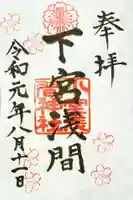 奉拝
下宮浅間
令和元年八月十一日